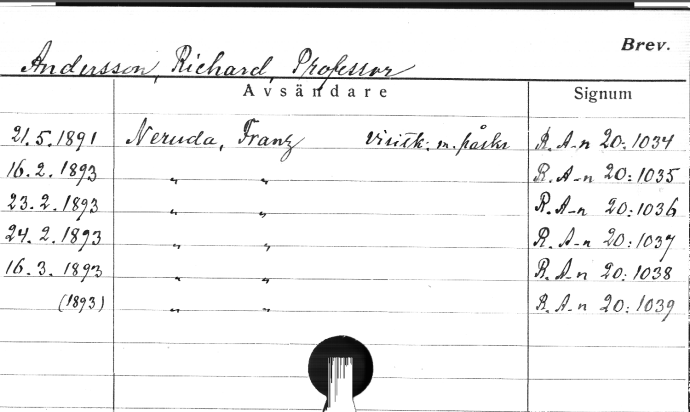 Brev.
Andersson, Richard, Professor
Avsändare Signum
21.5.1891 Neruda, Franz Visitk. m. påskr R. A-n 20:1034
16.2.1893 " " R. A-n 20:1035
23.2.1893 " " R. A-n 20:1036
24.2.1893 " " R. A-n 20:1037
16.3.1893 " " R. A-n 20:1038
(1893) " " R. A-n 20:1039